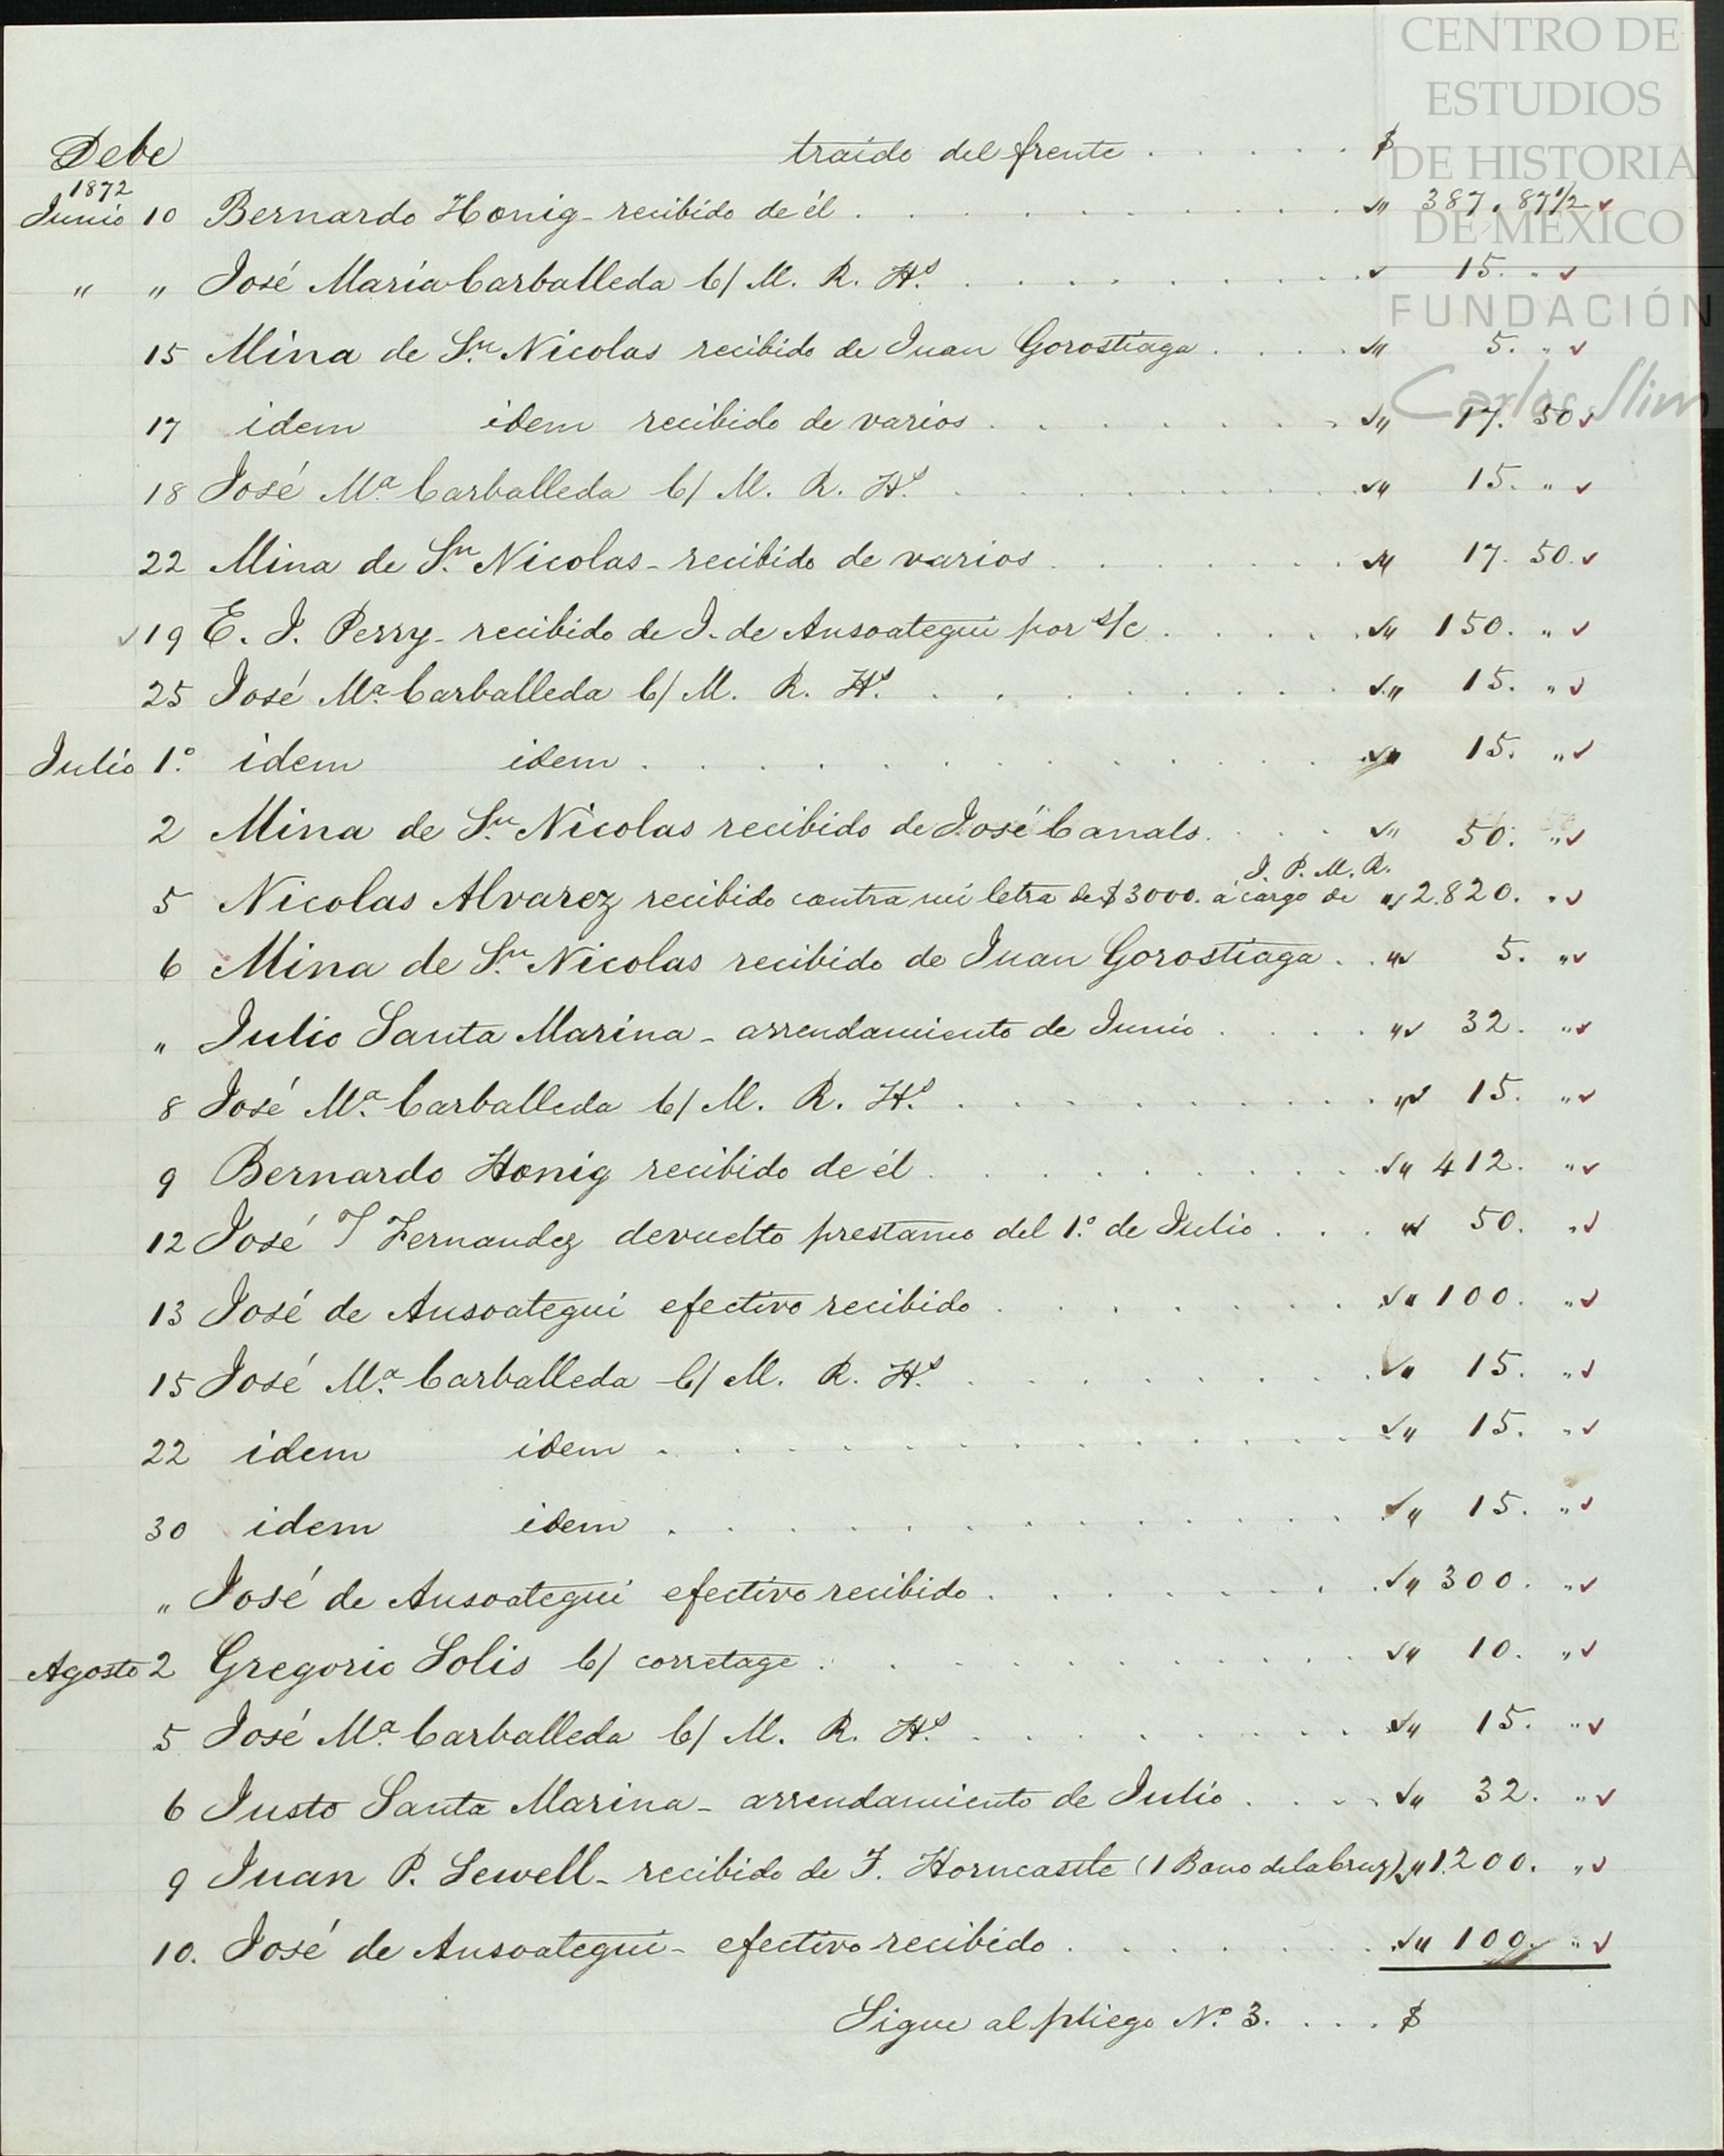 CENTRO DE
ESTUDIOS
DE HISTORIA
DE MÉXICO
FUNDACIÓN
Carlos Slim
Debe traido del frente . . . . . $
1872
Junio 10 Bernardo Honig - recibido de él . . . . " 387. 87 1/2
" " José Maria Carballeda C/ M. R. Hs. . . . . 15. "
15 Mina de Sn. Nicolas recibido de Juan Gorostiaga . . . " 5. "
17 idem idem recibido de varios . . . . " 17. 50
18 José Ma. Carballeda C/ M. R. Hs. . . . . " 15. "
22 Mina de Sn. Nicolas - recibido de varios . . . . " 17. 50.
19 E. J. Perry - recibido de J. de Ansoategui por s/c . . . . " 150. "
25 José Ma. Carballeda C/ M. R. Hs. . . . . " 15. "
Julio 1.° idem idem . . . . " 15. "
2 Mina de Sn. Nicolas recibido de José Canals . . . " 50. "
J. P. M. R.
5 Nicolas Alvarez recibido contra mi letra de $3000. á cargo de " 2.820. "
6 Mina de Sn. Nicolas recibido de Juan Gorostiaga . . " 5. "
" Julio Santa Marina - arrendamiento de Junio . . . . " 32. "
8 José Ma. Carballeda C/ M. R. Hs. . . . . " 15. "
9 Bernardo Honig recibido de él . . . . " 412. "
12 José T Fernandez devuelto prestamo del 1.° de Julio . . . " 50. "
13 José de Ansoategui efectivo recibido . . . . " 100. "
15 José Ma. Carballeda C/ M. R. Hs. . . . . " 15. "
22 idem idem . . . . " 15. "
30 idem idem . . . . " 15. "
" José de Ansoategui efectivo recibido . . . . " 300. "
Agosto 2 Gregorio Solis C/ corretage . . . . " 10. "
5 José Ma. Carballeda C/ M. R. Hs. . . . . " 15. "
6 Justo Santa Marina - arrendamiento de Julio . . . . " 32. "
9 Juan P. Sewell - recibido de F. Horncastle (1 Bano de la Cruz) " 1.200. "
10. José de Ansoategui - efectivo recibido . . . . " 100. "
Sigue al pliego N.° 3. . . . . $